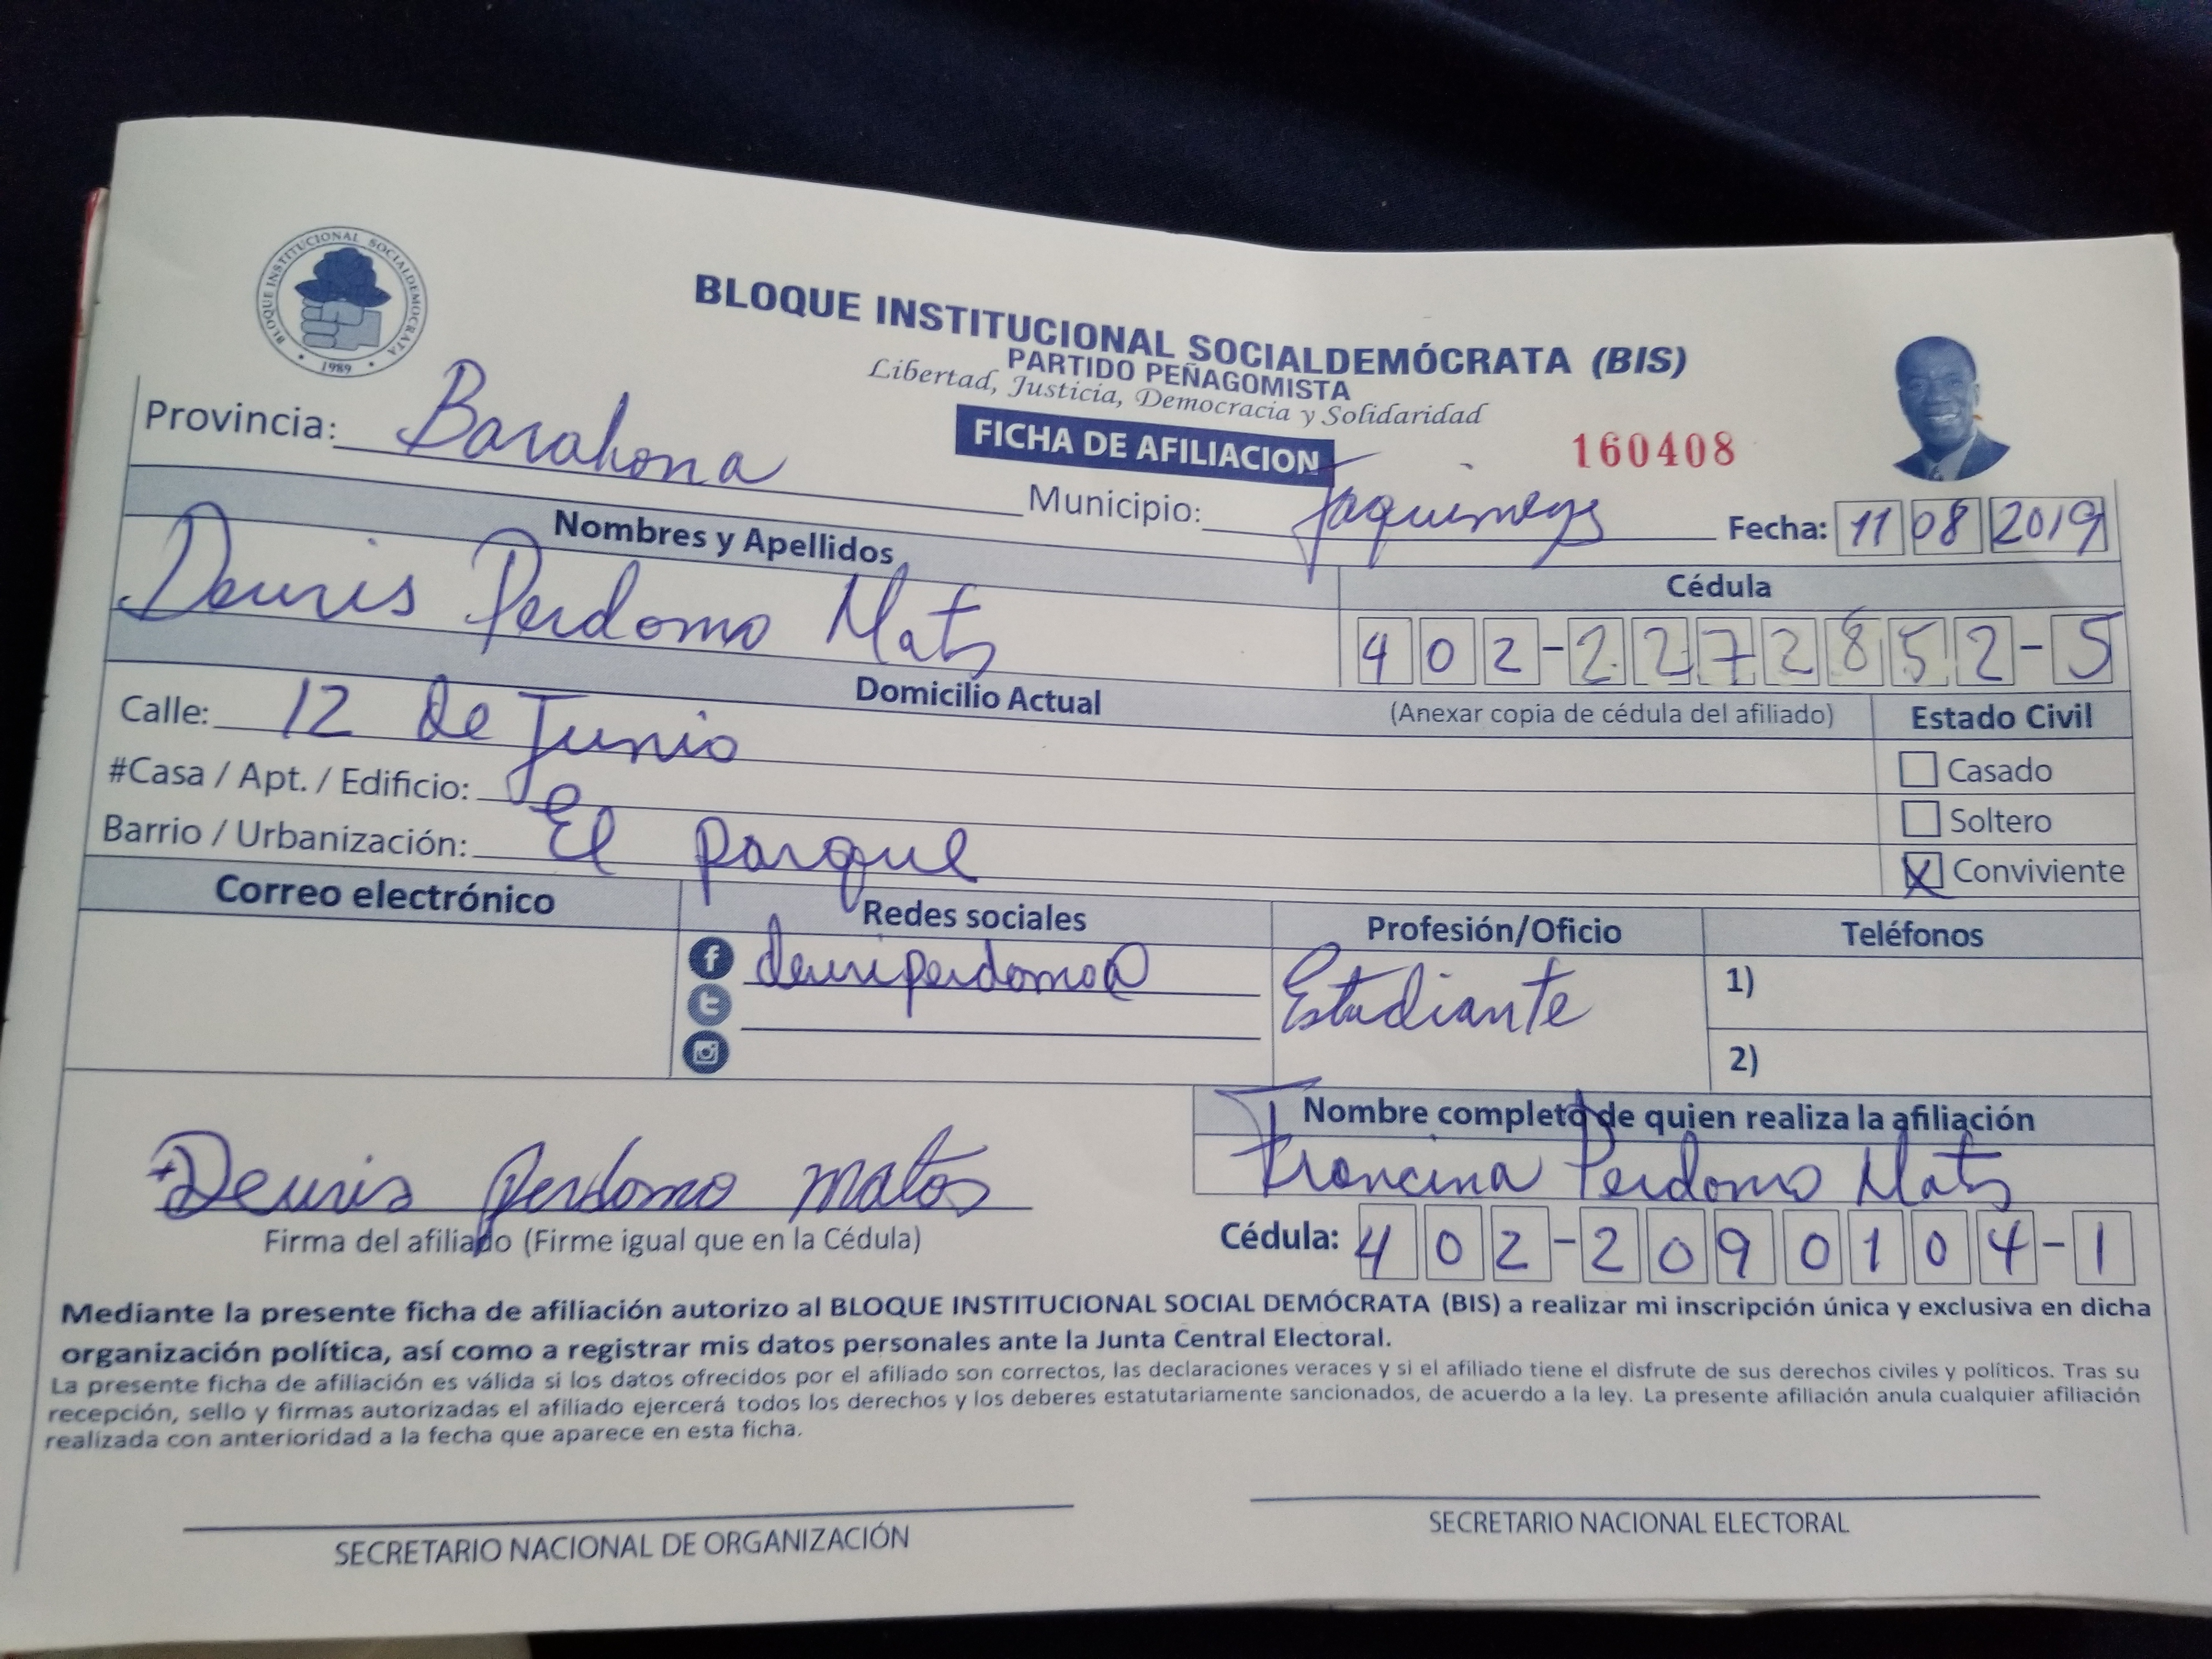 BLOQUE INSTITUCIONAL SOCIALDEMOCRATA
1989
BLOQUE INSTITUCIONAL SOCIALDEMÓCRATA (BIS)
PARTIDO PEÑAGOMISTA
Libertad, Justicia, Democracia y Solidaridad
FICHA DE AFILIACION
160408
Provincia: Barahona
Municipio: Jaquimeys
Fecha: 11 08 2019
Nombres y Apellidos
Deuris Perdomo Matos
Cédula
402-2272852-5
(Anexar copia de cédula del afiliado)
Domicilio Actual
Calle: 12 de Junio
#Casa / Apt. / Edificio:
Barrio / Urbanización: El parque
Estado Civil
Casado
Soltero
X Conviviente
Correo electrónico
Redes sociales
deuriperdomo@
Profesión/Oficio
Estudiante
Teléfonos
1)
2)
Deuris perdomo matos
Firma del afiliado (Firme igual que en la Cédula)
Nombre completo de quien realiza la afiliación
Francina Perdomo Matos
Cédula: 402-2090104-1
Mediante la presente ficha de afiliación autorizo al BLOQUE INSTITUCIONAL SOCIAL DEMÓCRATA (BIS) a realizar mi inscripción única y exclusiva en dicha
organización política, así como a registrar mis datos personales ante la Junta Central Electoral.
La presente ficha de afiliación es válida si los datos ofrecidos por el afiliado son correctos, las declaraciones veraces y si el afiliado tiene el disfrute de sus derechos civiles y políticos. Tras su
recepción, sello y firmas autorizadas el afiliado ejercerá todos los derechos y los deberes estatutariamente sancionados, de acuerdo a la ley. La presente afiliación anula cualquier afiliación
realizada con anterioridad a la fecha que aparece en esta ficha.
SECRETARIO NACIONAL DE ORGANIZACIÓN
SECRETARIO NACIONAL ELECTORAL